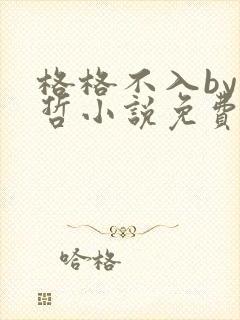 格格不入by
哲小說免費
哈格